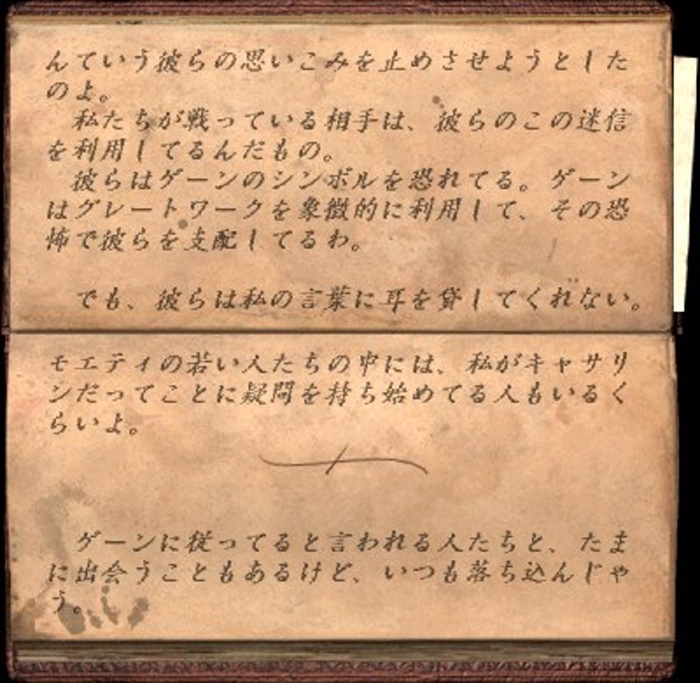 んていう彼らの思いこみを止めさせようとした
のよ。
私たちが戦っている相手は、彼らのこの迷信
を利用してるんだもの。
彼らはゲーンのシンボルを恐れてる。ゲーン
はグレートワークを象徴的に利用して、その恐
怖で彼らを支配してるわ。
でも、彼らは私の言葉に耳を貸してくれない。
モエティの若い人たちの中には、私がキャサリ
ンだってことに疑問を持ち始めてる人もいるく
らいよ。
ゲーンに従ってると言われる人たちと、たま
に出会うこともあるけど、いつも落ち込んじゃ
う。